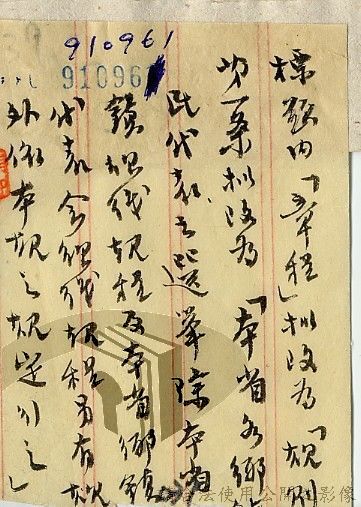 910961
910961
標題內「章程」擬改為「規則
第一條擬改為「本省各鄉
民代表之選舉除本省
鎮組織規程及本省鄉鎮
代表會組織規程另有規
外依本規之規定行之」
合法使用公開之影像